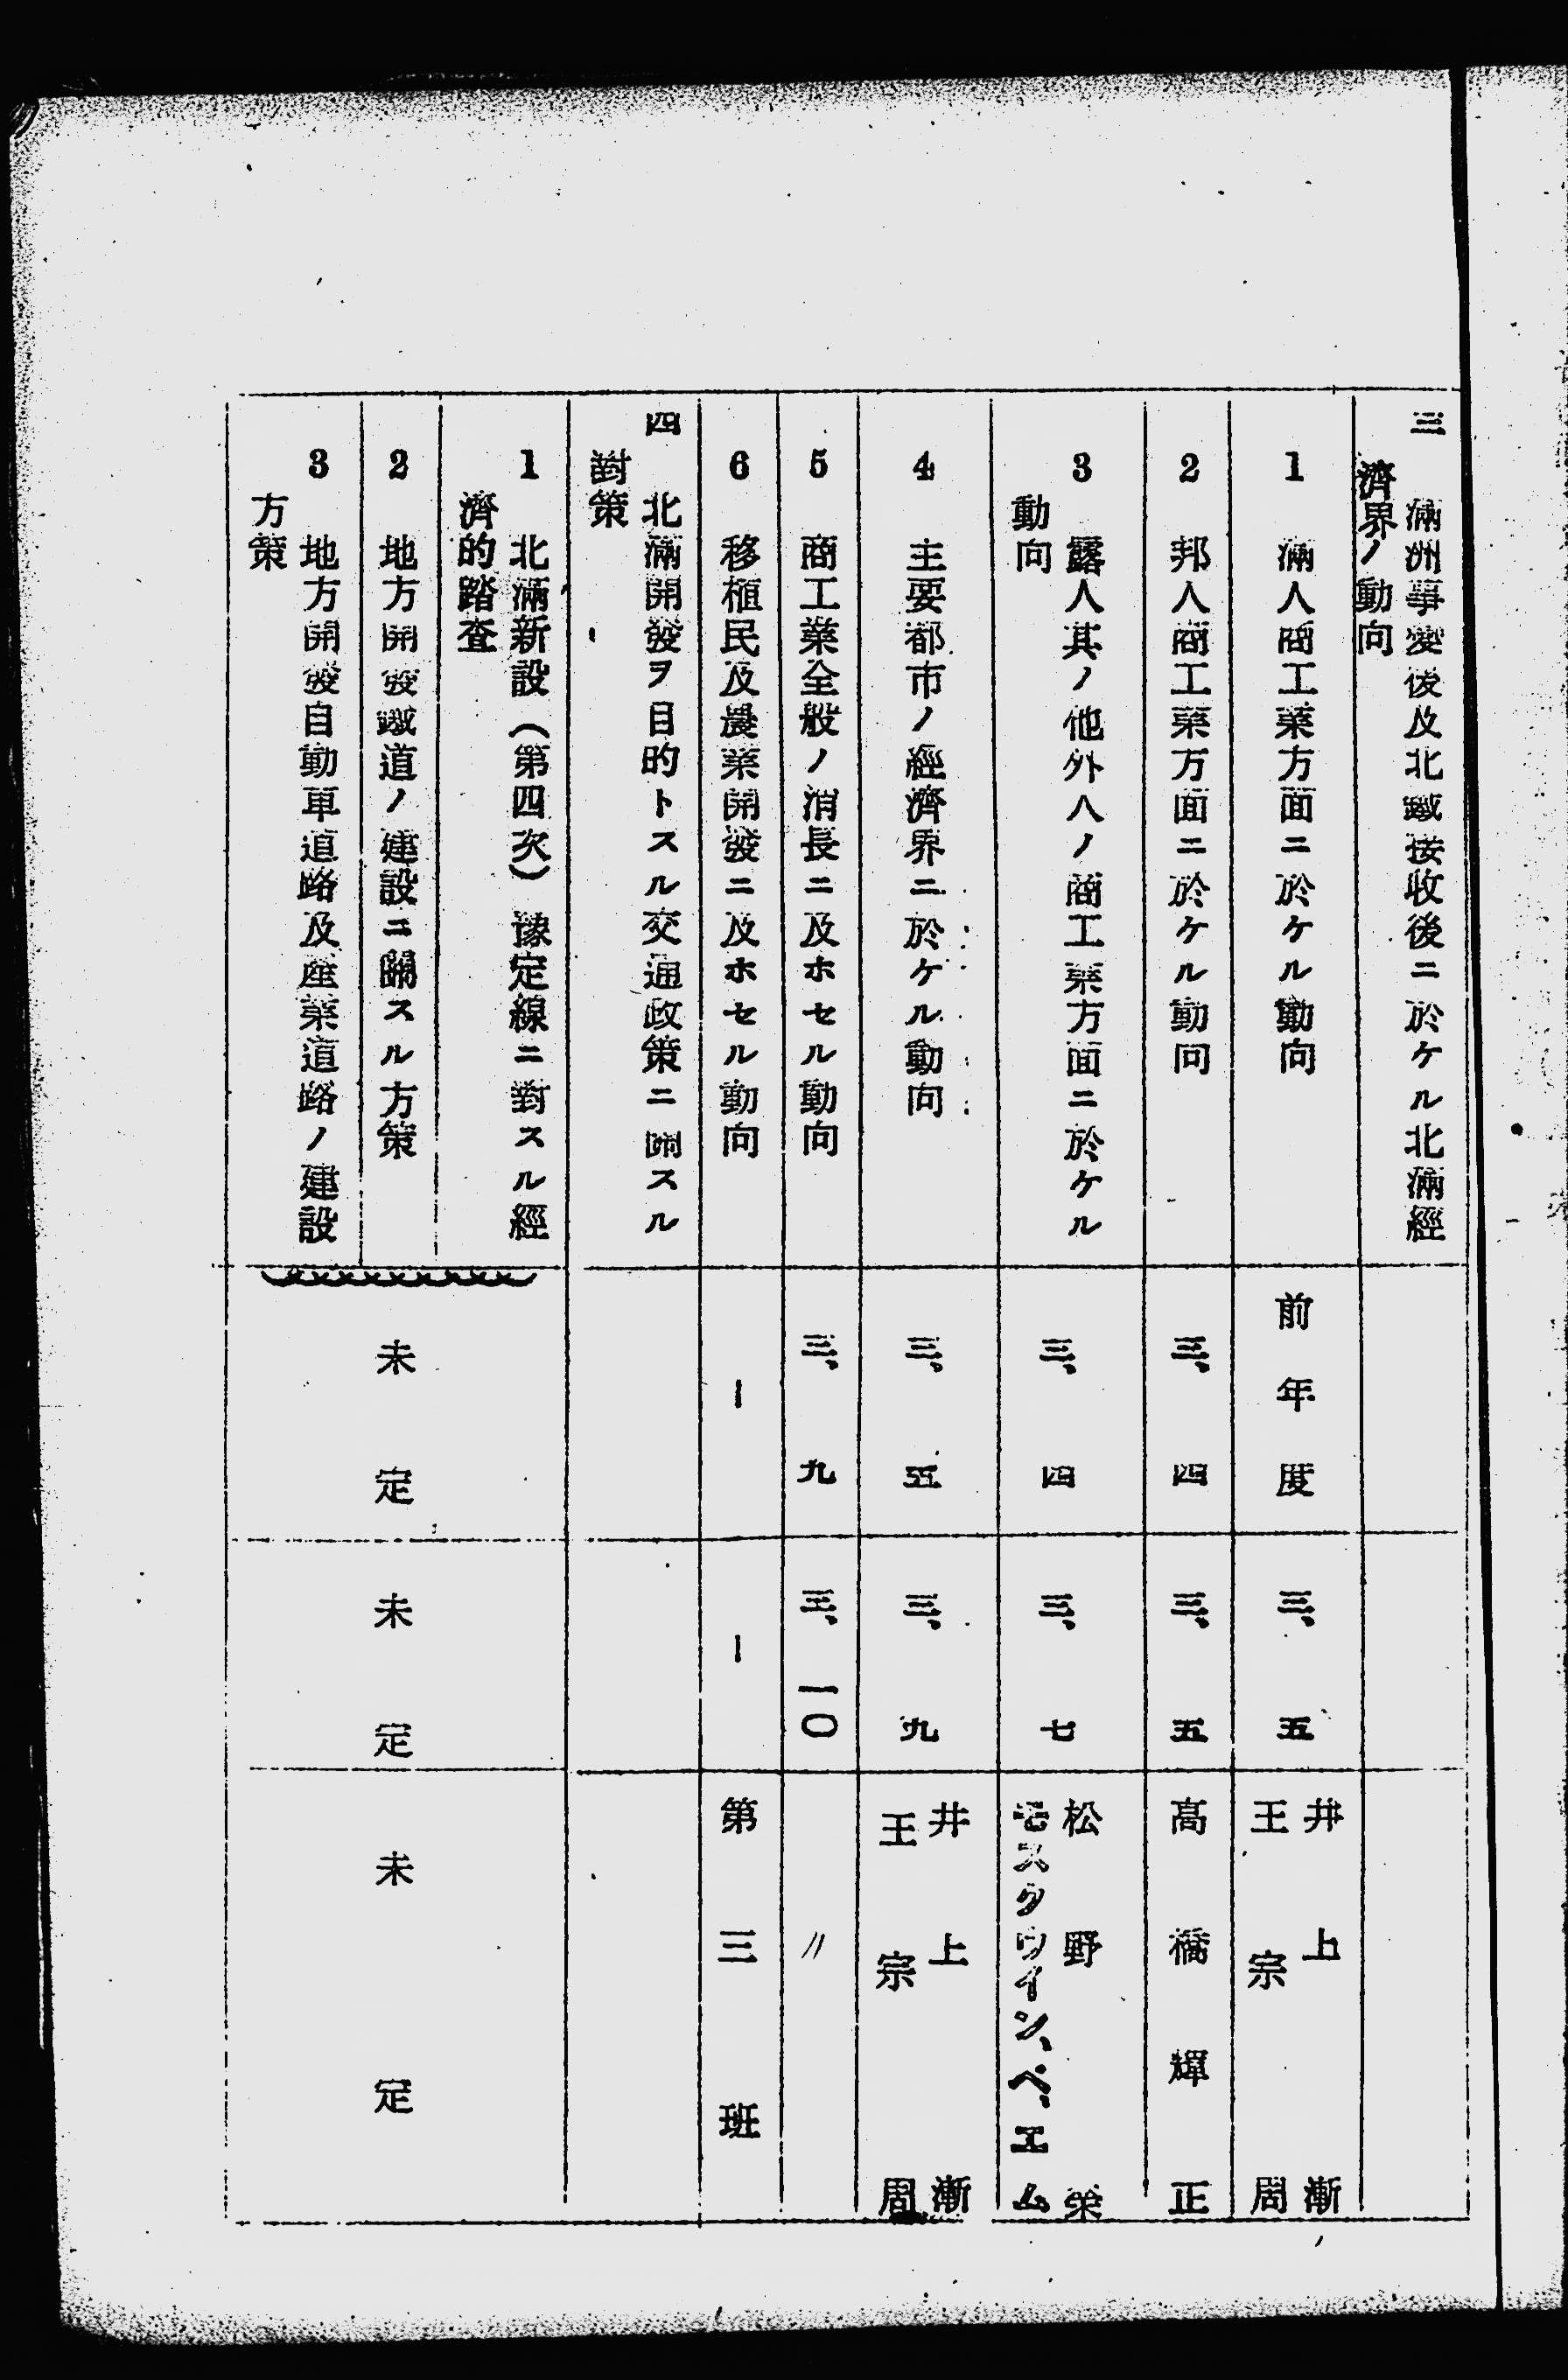 三　滿洲事變後及北鐵接收後ニ於ケル北滿經
濟界ノ動向
1　滿人商工業方面ニ於ケル動向
前年度
三、五
井上漸
王宗周
2　邦人商工業方面ニ於ケル動向
三、四
三、五
高橋輝正
3　露人其ノ他外人ノ商工業方面ニ於ケル
動向
三、四
三、七
松野榮
モスクウイン、ペ、エム
4　主要都市ノ經濟界ニ於ケル動向
三、五
三、九
井上漸
王宗周
5　商工業全般ノ消長ニ及ホセル動向
三、九
三、一〇
〃
6　移植民及農業開發ニ及ホセル動向
ー
ー
第三班
四　北滿開發ヲ目的トスル交通政策ニ關スル
對策
1　北滿新設（第四次）豫定線ニ對スル經
濟的踏査
2　地方開發鐵道ノ建設ニ關スル方策
3　地方開發自動車道路及産業道路ノ建設
方策
未定
未定
未定